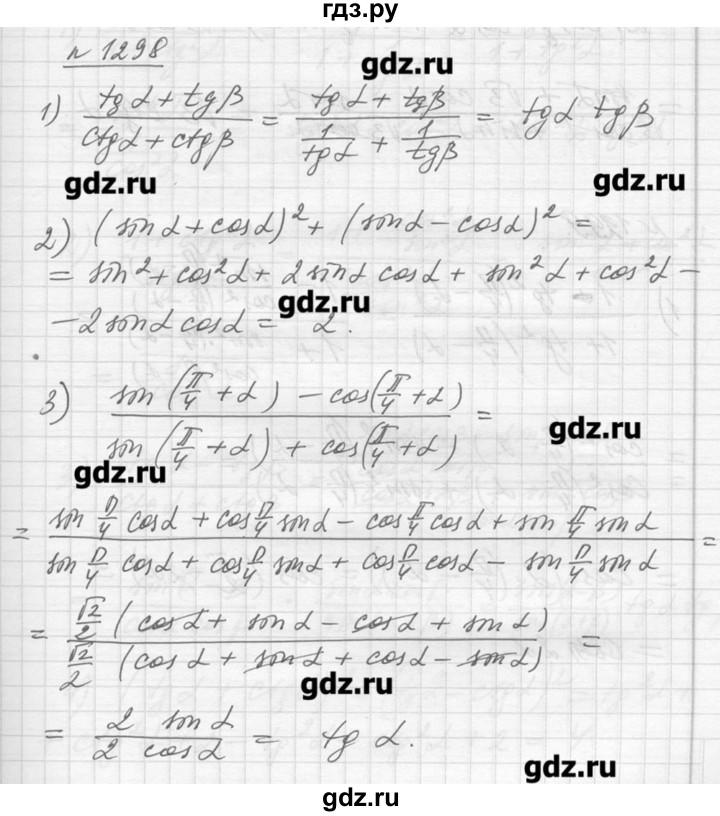 гдз.ру
n 1298
gdz.ru
1) (tg α + tg β)/(ctg α + ctg β) = (tg α + tg β)/(1/tg α + 1/tg β) = tg α tg β
gdz.ru
gdz.ru
2) (sin α + cos α)² + (sin α − cos α)² =
= sin² + cos² α + 2 sin α cos α + sin² α + cos² α −
− 2 sin α cos α = 2.
gdz.ru
3) (sin (π/4 + α) − cos (π/4 + α))/(sin (π/4 + α) + cos (π/4 + α)) =
gdz.ru
gdz.ru
= (sin π/4 cos α + cos π/4 sin α − cos π/4 cos α + sin π/4 sin α)/(sin π/4 cos α + cos π/4 sin α + cos π/4 cos α − sin π/4 sin α) =
= (√2/2 (cos α + sin α − cos α + sin α))/(√2/2 (cos α + sin α + cos α − sin α)) =
gdz.ru
= (2 sin α)/(2 cos α) = tg α.
gdz.ru
gdz.ru